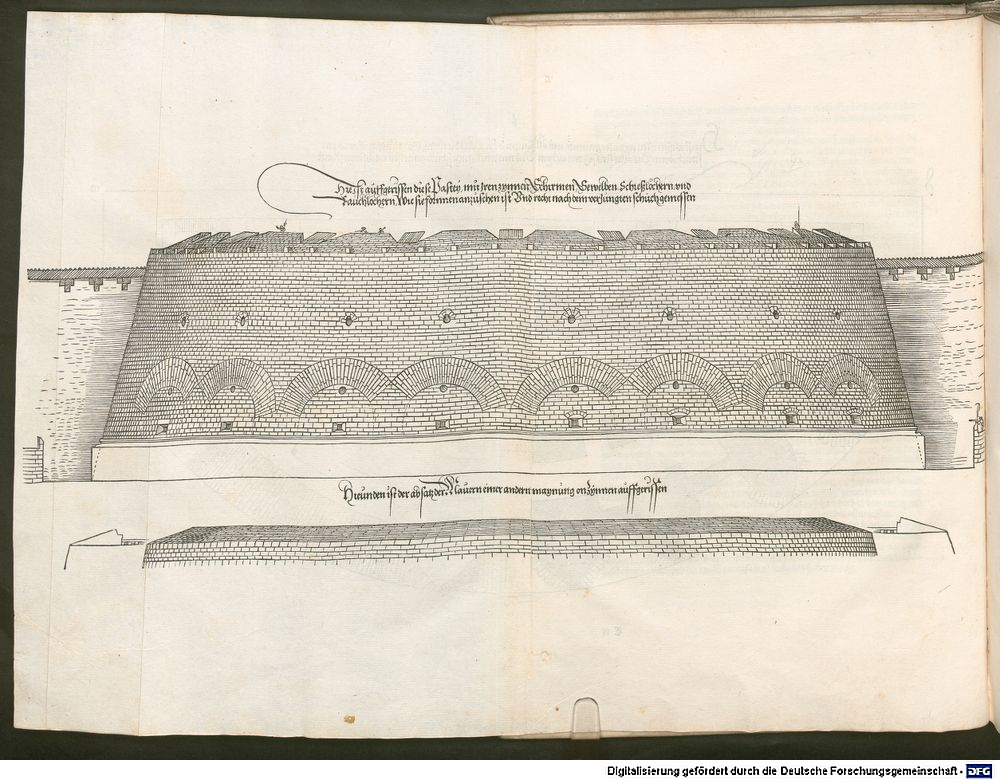 Hie ist auffgerissen dise Pastey, mit iren zynnen Schirmen Gewelben Schießlöchern vnd
Rauchlöchern Wie sie foinnen anzusehen ist Vnd recht nach dem veriungten schuch gemessen
Hieunden ist der absatz der Mauern einer andern maynung on Zynnen auffgerissen
Digitalisierung gefördert durch die Deutsche Forschungsgemeinschaft - DFG